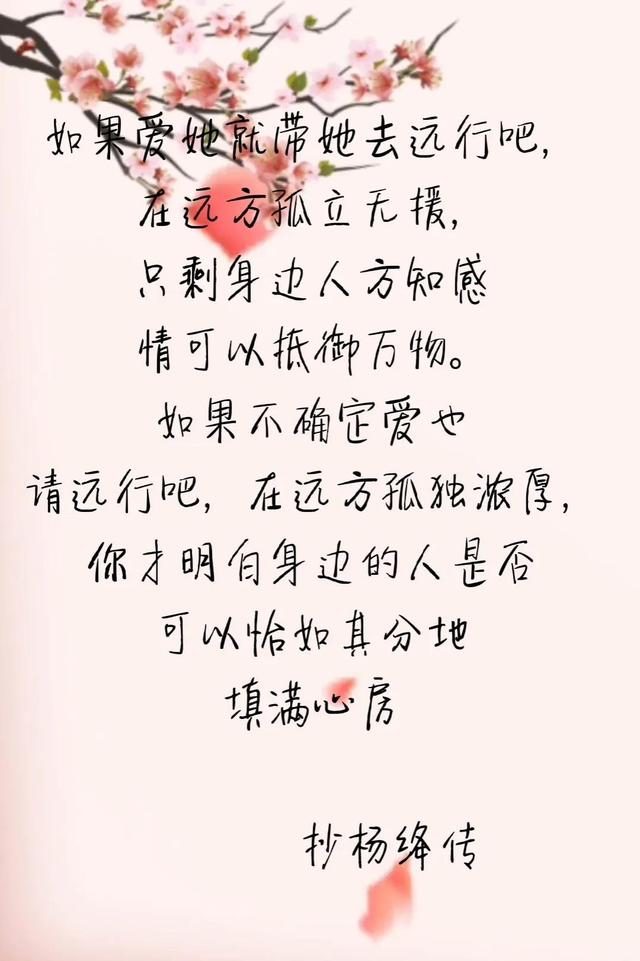 如果爱她就带她去远行吧,
在远方孤立无援,
只剩身边人方知感
情可以抵御万物。
如果不确定爱也
请远行吧, 在远方孤独浓厚,
你才明白身边的人是否
可以恰如其分地
填满心房
抄杨绛传